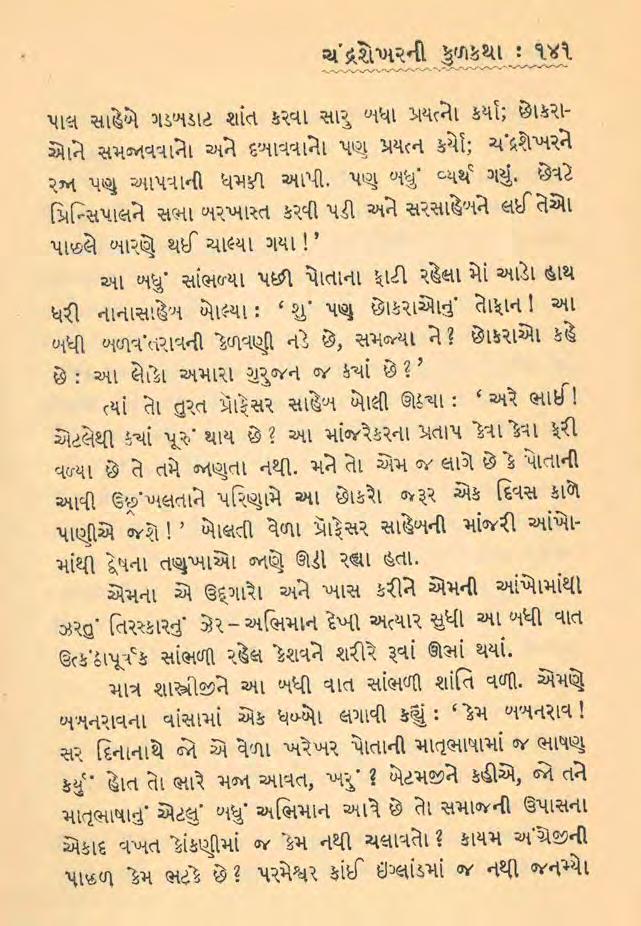 ચંદ્રશેખરની કુળકથા : ૧૪૧
પાલ સાહેબે ગડબડાટ શાંત કરવા સારુ બધા પ્રયત્નો કર્યા; છોકરા-
ઓને સમજાવવાનો અને દબાવવાનો પણ પ્રયત્ન કર્યો; ચંદ્રશેખરને
રજા પણ આપવાની ધમકી આપી. પણ બધું વ્યર્થ ગયું. છેવટે
પ્રિન્સિપાલને સભા બરખાસ્ત કરવી પડી અને સરસાહેબને લઈ તેઓ
પાછલે બારણે થઈ ચાલ્યા ગયા !’
આ બધું સાંભળ્યા પછી પોતાના ફાટી રહેલા મોં આડો હાથ
ધરી નાનાસાહેબ બોલ્યા : ‘ શું પણ છોકરાઓનું તોફાન ! આ
બધી બળવંતરાવની કેળવણી નડે છે, સમજ્યા ને ? છોકરાઓ કહે
છે : આ લોકો અમારા ગુરુજન જ ક્યાં છે ?’
ત્યાં તો તુરત પ્રોફેસર સાહેબ બોલી ઊઠ્યા : ‘ અરે ભાઈ !
એટલેથી ક્યાં પૂરું થાય છે ? આ માંજરેકરના પ્રતાપ કેવા કેવા ફરી
વળ્યા છે તે તમે જાણતા નથી. મને તો એમ જ લાગે છે કે પોતાની
આવી ઉછૃંખલતાને પરિણામે આ છોકરો જરૂર એક દિવસ કાળે
પાણીએ જશે ! ’ બોલતી વેળા પ્રોફેસર સાહેબની માંજરી આંખો-
માંથી દ્વેષના તણખાઓ જાણે ઊડી રહ્યા હતા.
એમના એ ઉદ્ગારો અને ખાસ કરીને એમની આંખોમાંથી
ઝરતું તિરસ્કારનું ઝેર – અભિમાન દેખી અત્યાર સુધી આ બધી વાત
ઉત્કંઠાપૂર્વક સાંભળી રહેલ કેશવને શરીરે રૂવાં ઊભાં થયાં.
માત્ર શાસ્ત્રીજીને આ બધી વાત સાંભળી શાંતિ વળી. એમણે
બબનરાવના વાંસામાં એક ધબ્બો લગાવી કહ્યું : ‘ કેમ બબનરાવ !
સર દિનાનાથે જો એ વેળા ખરેખર પોતાની માતૃભાષામાં જ ભાષણ
કર્યું હોત તો ભારે મજા આવત, ખરું ? બેટમજીને કહીએ, જો તને
માતૃભાષાનું એટલું બધું અભિમાન આવે છે તો સમાજની ઉપાસના
એકાદ વખત કોંકણીમાં જ કેમ નથી ચલાવતો ? કાયમ અંગ્રેજીની
પાછળ કેમ ભટકે છે ? પરમેશ્વર કાંઈ ઇંગ્લાંડમાં જ નથી જનમ્યો